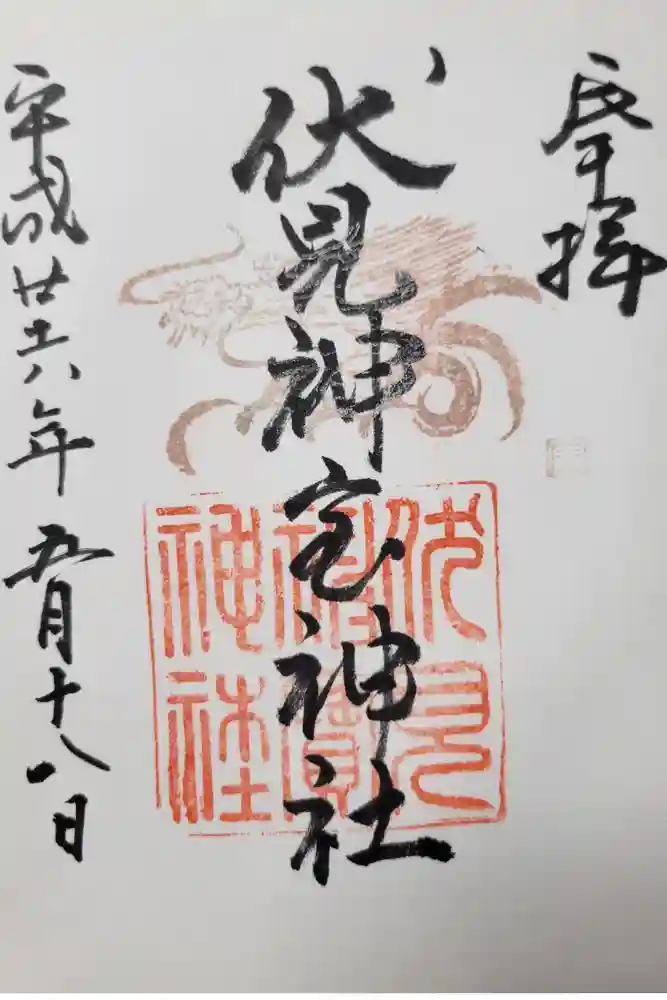 奉拝
伏見神宝神社
伏見
神寶
神社
平成廿六年五月十八日